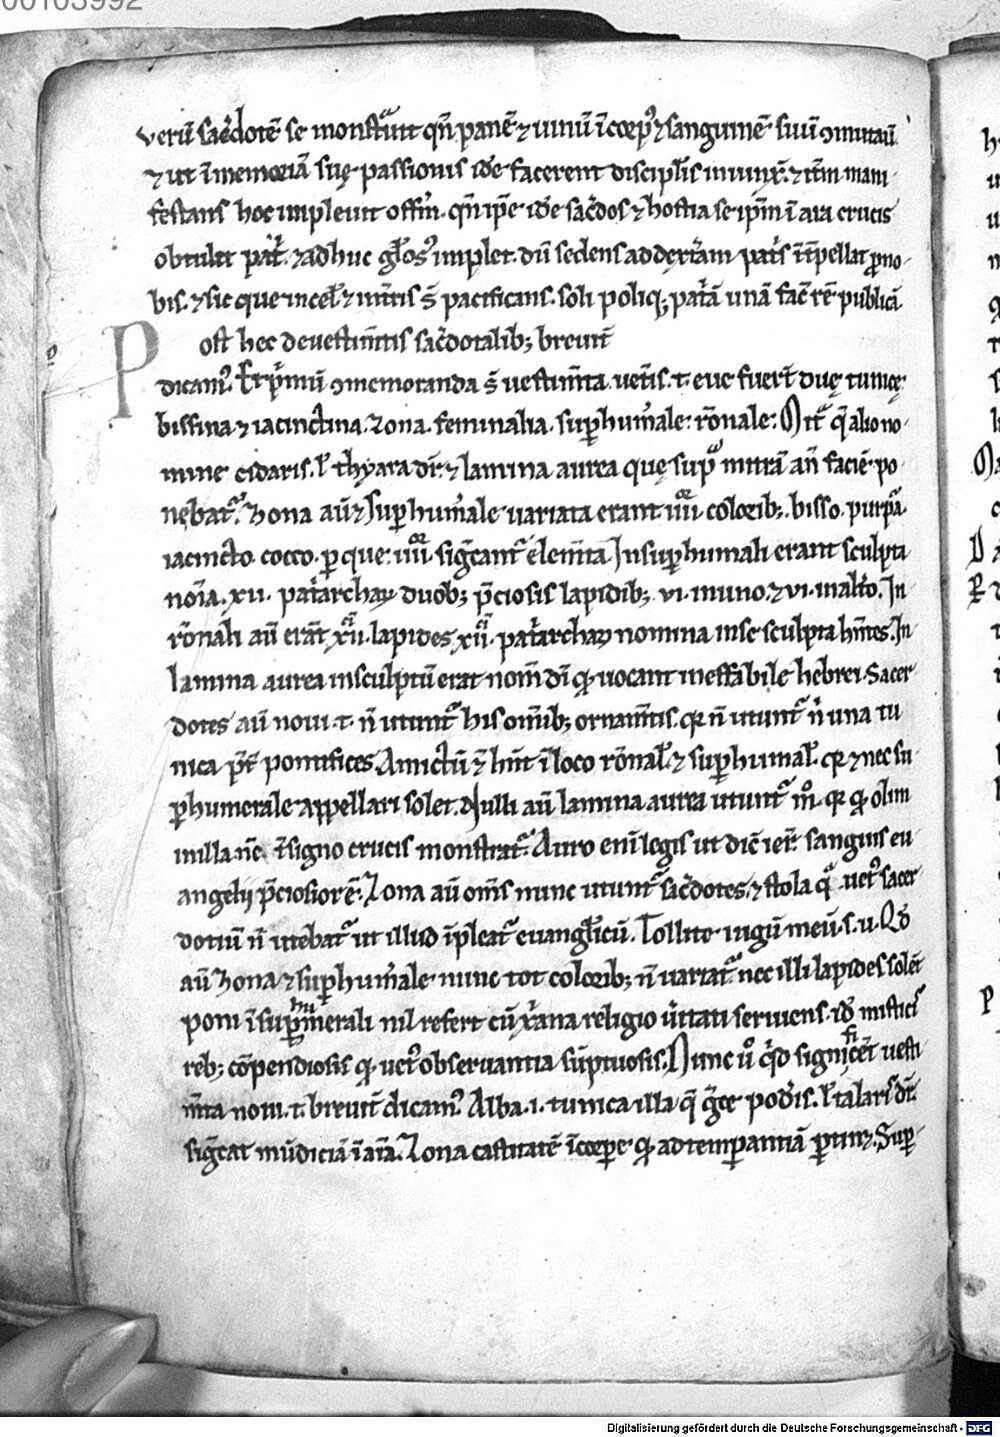 00103992
verū sac̄dotē se monstͣuit qn̄ panē ⁊ uinū ī corp᷒ ⁊ sanguinē suū ꝯmutauit
⁊ ut ī memoriā suę passionis idē facerent discipl̄is iniunx̄. ⁊ itm̄ mani
festans hoc impleuit offm̄. qn̄ ip̄e idē sac̄dos ⁊ hostia se ip̄m ī ara crucis
obtulit patͥ. ⁊ adhuc gl̄os᷒ implet. dū sedens ad dext̄am patͥs īt̄pellat ꝓ no
bis. ⁊ sic que in cel̄ ⁊ in tr̄is s̄ pacificans. soli poliq; patͥā unā fac̄ rē publicā
Post hec de uestim̄tis sac̄dotalib; breuit̄
dicam᷒. Et pͥmū ꝯmemoranda s̄ uestim̄ta. uet̄is .t. eue fuer̄t duę tunicę
bissina ⁊ iacinctina. zona. feminalia. suꝑhum̄ale. rōnale. Mitͣ q̄ alio no
mine cidaris. ł thyara dr̄. ⁊ lamina aurea quę supͣ mitrā an̄ faciē po
nebatͬ. Zona aū ⁊ suꝑhum̄ale uariata erant iiiiᵒʳ colorib;. bisso. purpͣa.
iacincto. cocco. ꝑ que .iiiiᵒʳ sigͥcantͬ elem̄ta. In suꝑhumali erant sculpta
noīa .xii. patͥarchaꝝ duob; p̄ciosis lapidib;. vi. in uno. ⁊ vi. in alt̄o. In
rōnali aū erāt xiiᵒⁱᵐ lapides xiiᵒⁱᵐ patͥarchaꝝ nomina in se sculpta hn̄tes. In
lamina aurea insculptū erat nom̄ dī qͩ uocant ineffabile hebrei. Sacer
dotes aū noui .t. n̄ utuntͬ his om̄ib; ornam̄tis. qꝛ n̄ utuntͬ nͥ una tu
nica p̄t̄ pontifices. Amictū ē hn̄t ī loco rōnal̄ ⁊ suꝑhumal̄. qꝛ ⁊ nec su
ꝑhumerale appellari solet. Nulli aū lamina aurea utuntͬ mͦ. qꝛ qͩ olim
in illa. nc̄ ī signo crucis monstratͬ. Auro enī legis ut dic̄ ier̄. sanguis eu
angelij p̄ciosior ē. Zona aū om̄s nunc utuntͬ sac̄dotes. ⁊ stola qͣ uet᷒ sacer
dotiū n̄ utebatͬ ut illud īpleatͬ euangl̄icū. Tollite iugū meū .s. u. Qd̄
aū zona ⁊ suꝑhum̄ale nunc tot colorib; n̄ uariatͬ nec illi lapides solēt
poni ī suꝑhumerali nil refert cū xͥana religio ūitati seruiens. id̄ misticͥ
reb; cōpendiosis qͣ uet᷒ obseruantia sūptuosis. Nunc uͦ qͥd significēt uesti
m̄ta noui .t. breuit̄ dicam᷒. Alba .i. tunica illa q̄ gͬce pod̄is. ł talaris dr̄.
sigͥcat mūdiciā ī aīa. Zona castitatē ī corpe qͩ ad temꝑantiā ꝑtinꝫ. Suꝑ
Digitalisierung gefördert durch die Deutsche Forschungsgemeinschaft - DFG